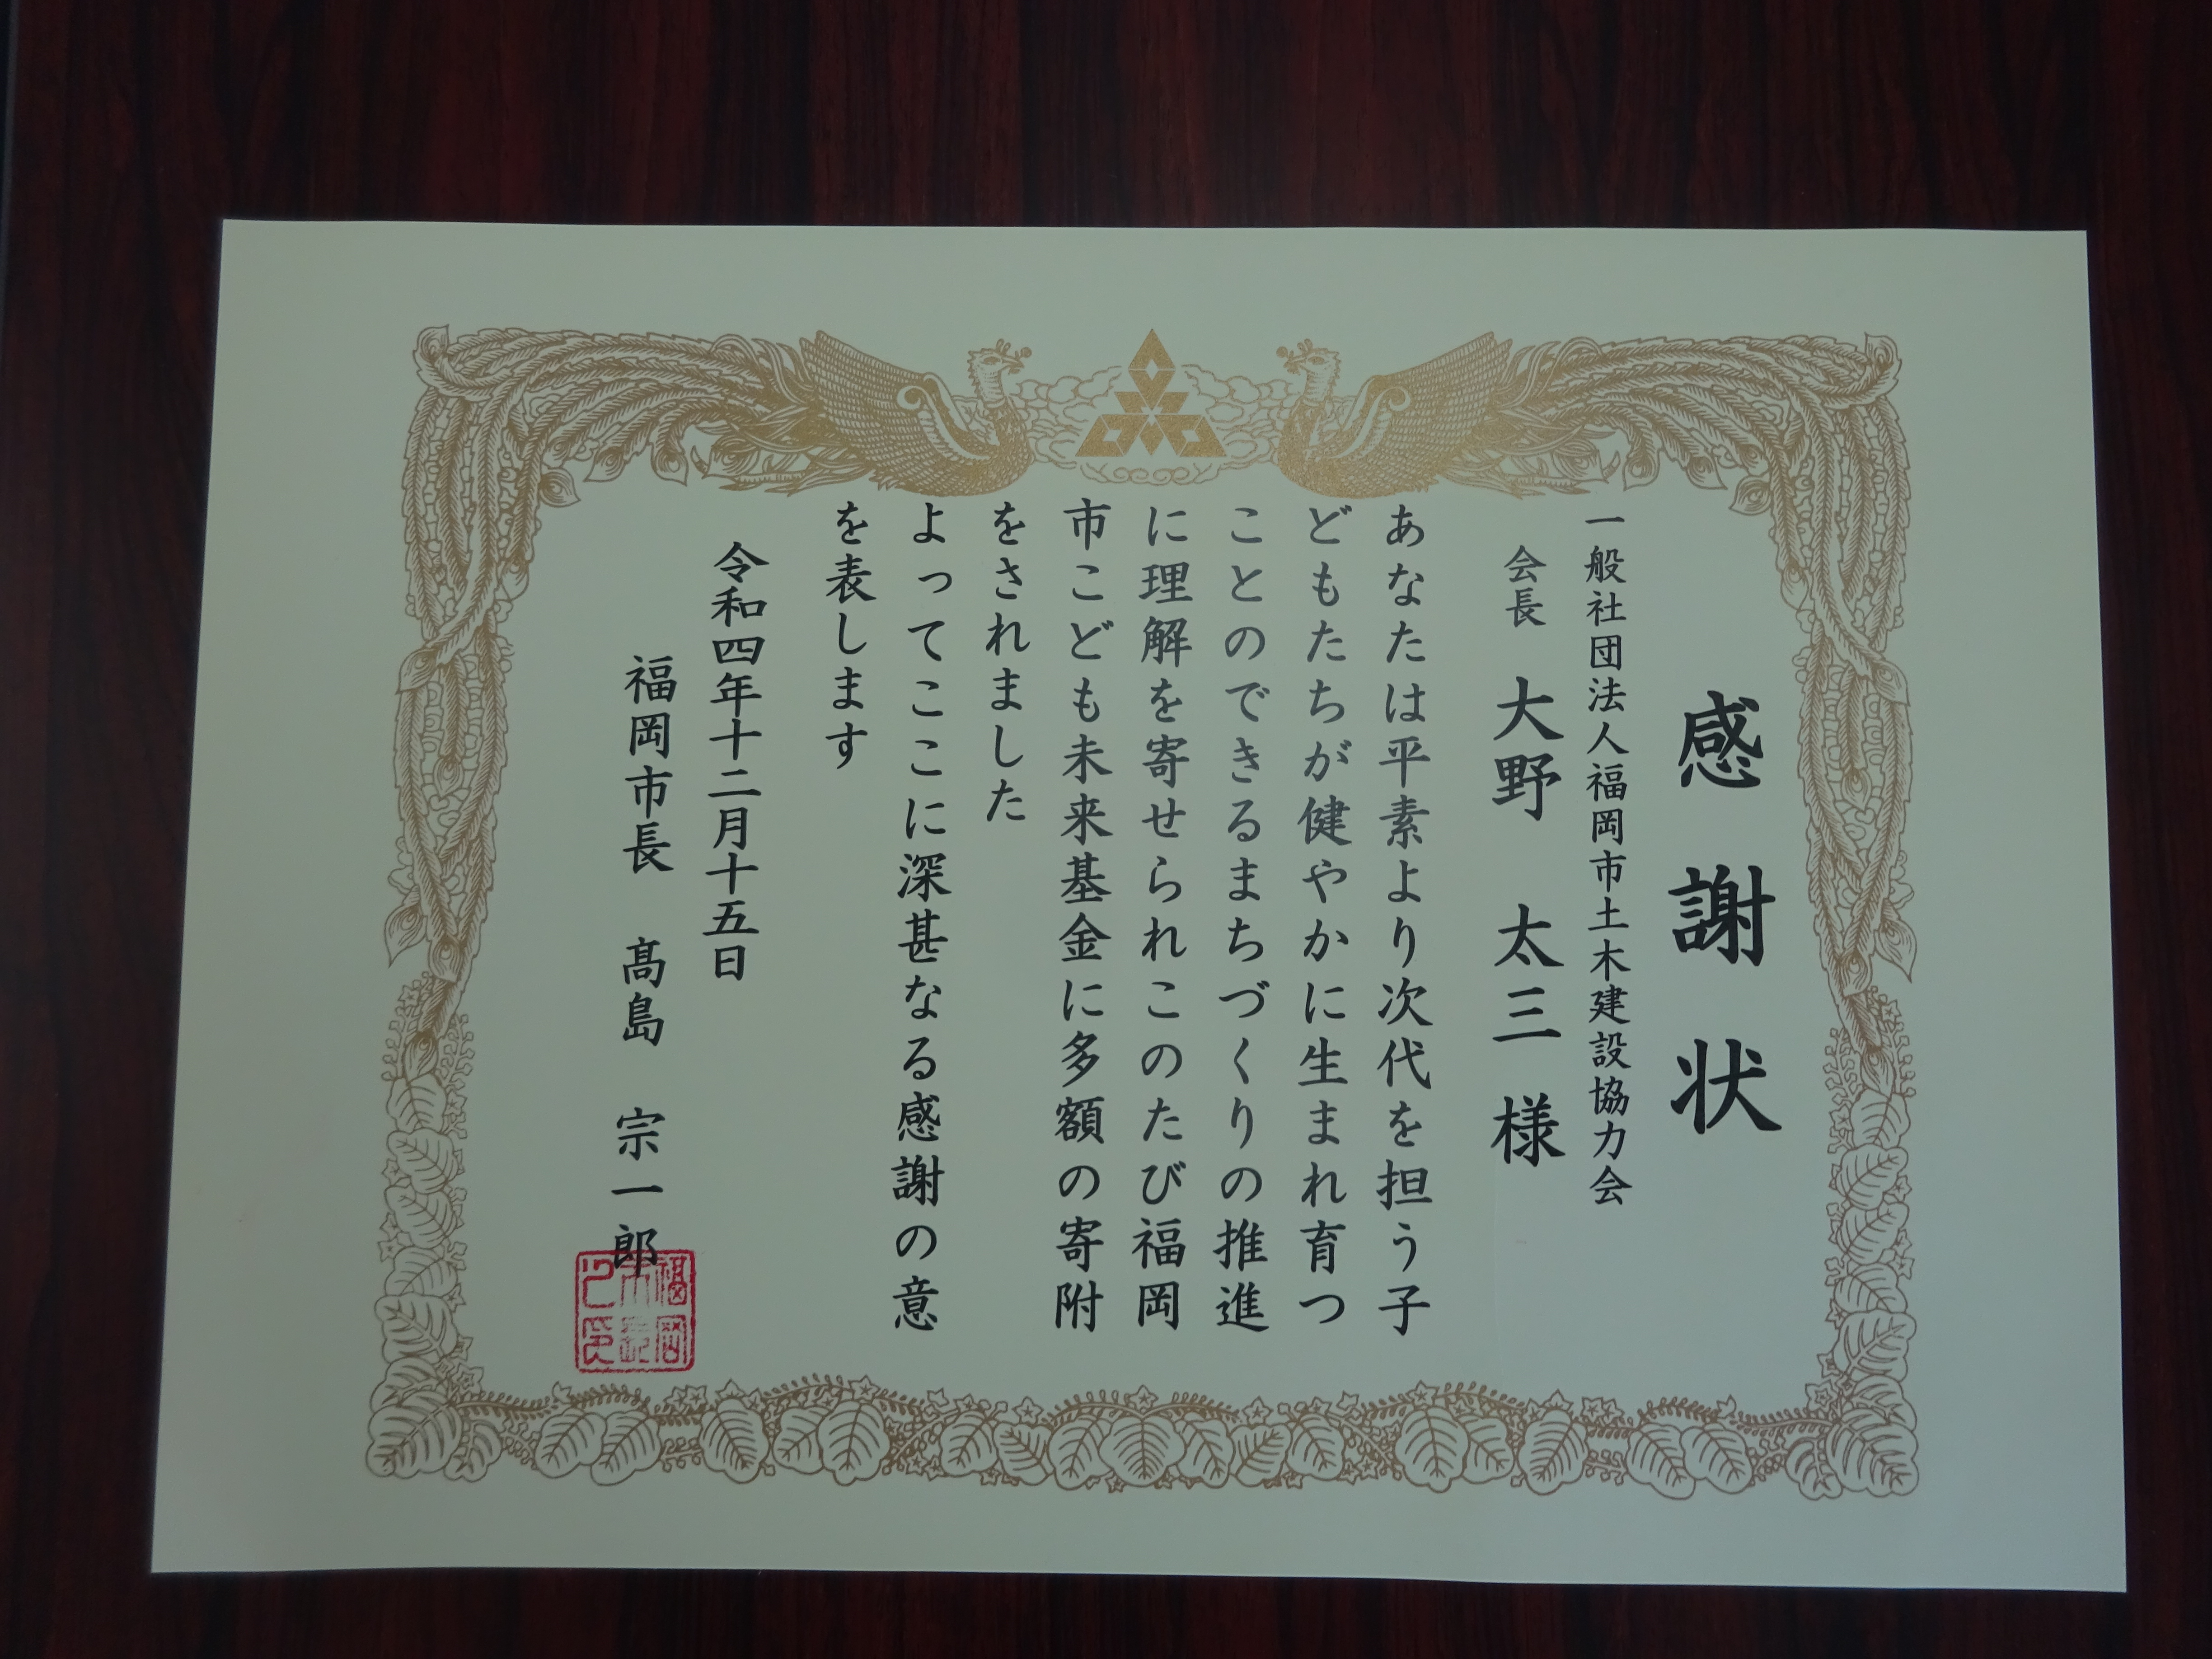 感謝状
一般社団法人福岡市土木建設協力会
会長 大野 太三 様
あなたは平素より次代を担う子
どもたちが健やかに生まれ育つ
ことのできるまちづくりの推進
に理解を寄せられこのたび福岡
市こども未来基金に多額の寄附
をされました
よってここに深甚なる感謝の意
を表します
令和四年十二月十五日
福岡市長 髙島 宗一郎
福岡市長之印